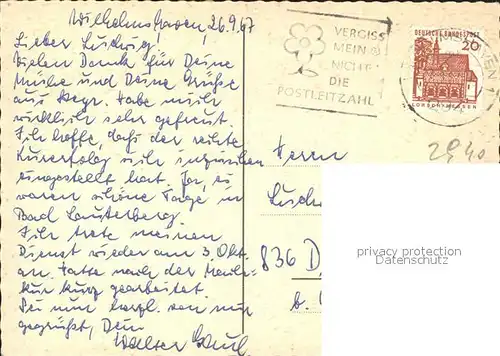 Wilhelmshaven, 26.9.67
Lieber Ludwig!
Vielen Dank für Deine
Mühe und Deine Grüße
aus Habe mich
wirklich sehr gefreut.
Ich hoffe, daß der rechte
Kurerfolg sich inzwischen
eingestellt hat. Ja, es
waren schöne Tage in
Bad Lauterberg.
Ich trete meinen
Dienst wieder am 3. Okt.
an. Hatte nach der
kur kurz gearbeitet.
Sei nun herzl. von mir
gegrüßt, Dein
VERGISS
MEIN
NICHT
DIE
POSTLEITZAHL
DEUTSCHE BUNDESPOST
20
LORSCH/HESSEN
Herrn
836 D
b.
privacy protection
Datenschutz